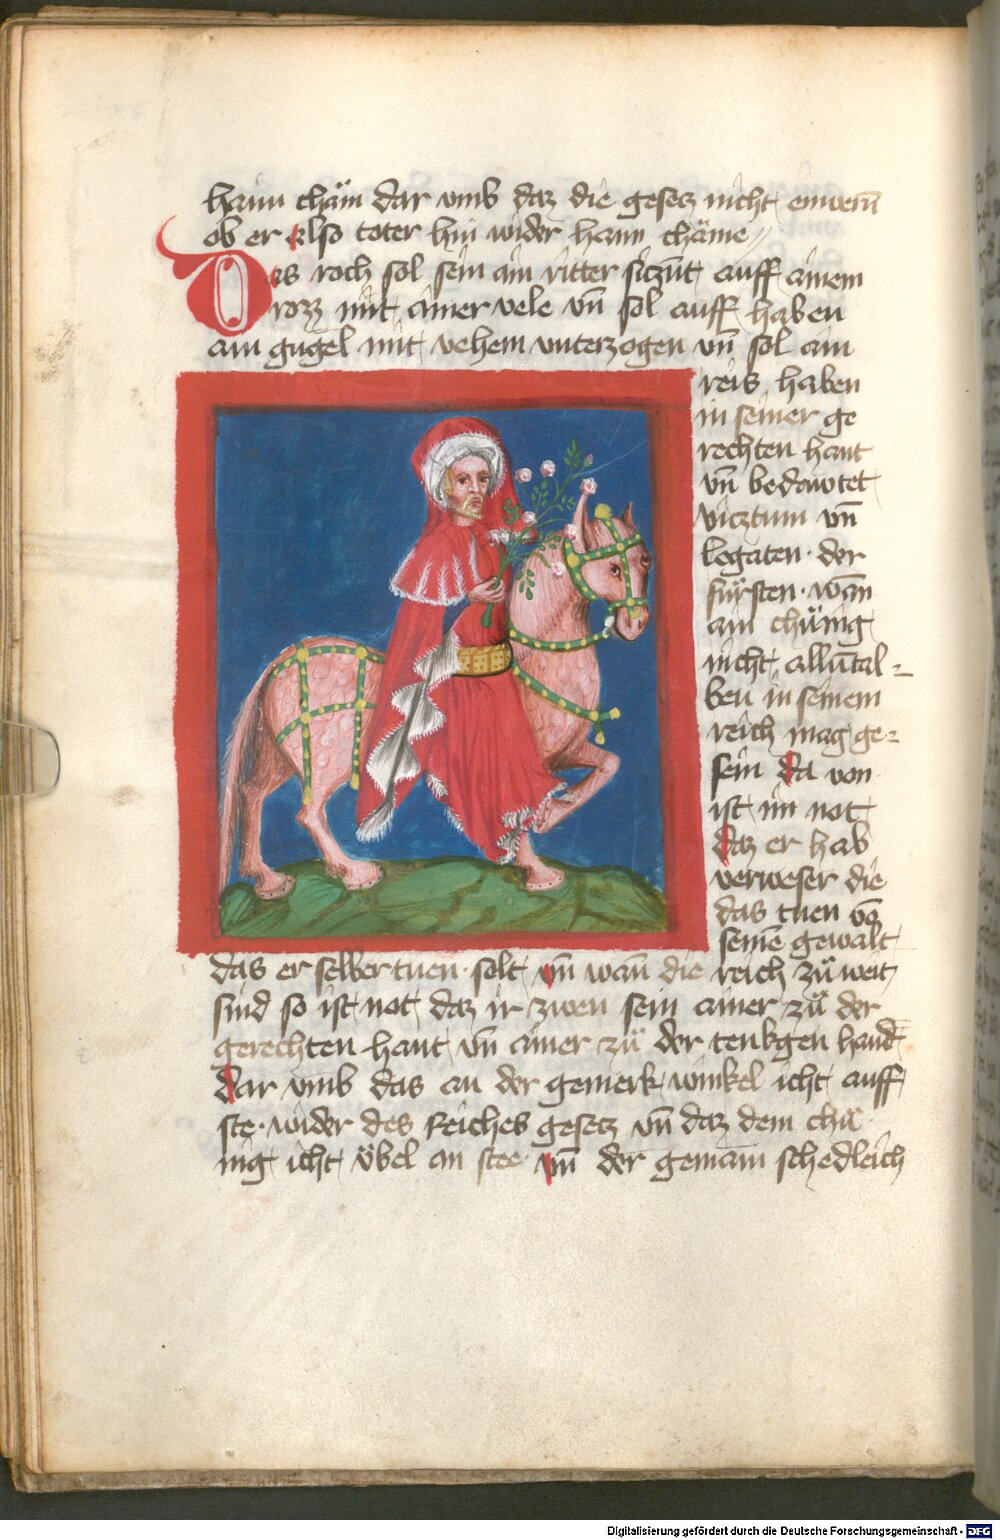 haim chäm dar vmb daz die gesecz nicht einweru̅
ob er also toter hin wider haim chäme
Das roch sol sein ain ritter siczu̅t auff ainem
rozz mit ainer vele vn̅ sol auff haben
ain gugel mit vehem vnterzogen vn̅ sol ain
reis haben
in seiner ge
rechten hant
vn̅ bedawtet
vicztum vn̅
legaten · der
fürsten · wan̅
ain chünig
nicht allu̅tal-
ben in seinem
reich mag ge-
sein da von
ist im not
daz er hab
verweser die
das tuen vo̅
seine̅ gewalt
das er selber tuen · solt vn̅ wan̅ die reich zü weit
sind so ist not daz ir zwen sein ainer zü der
gerechten hant vn̅ ainer zü der tenkgen hand
dar vmb das an der gemerk winkel icht auff
ste · wider des Reiches gesecz vn̅ daz dem chü
nig icht übel an stee · vn̅ der gemain schedleich
Digitalisierung gefördert durch die Deutsche Forschungsgemeinschaft - DFG